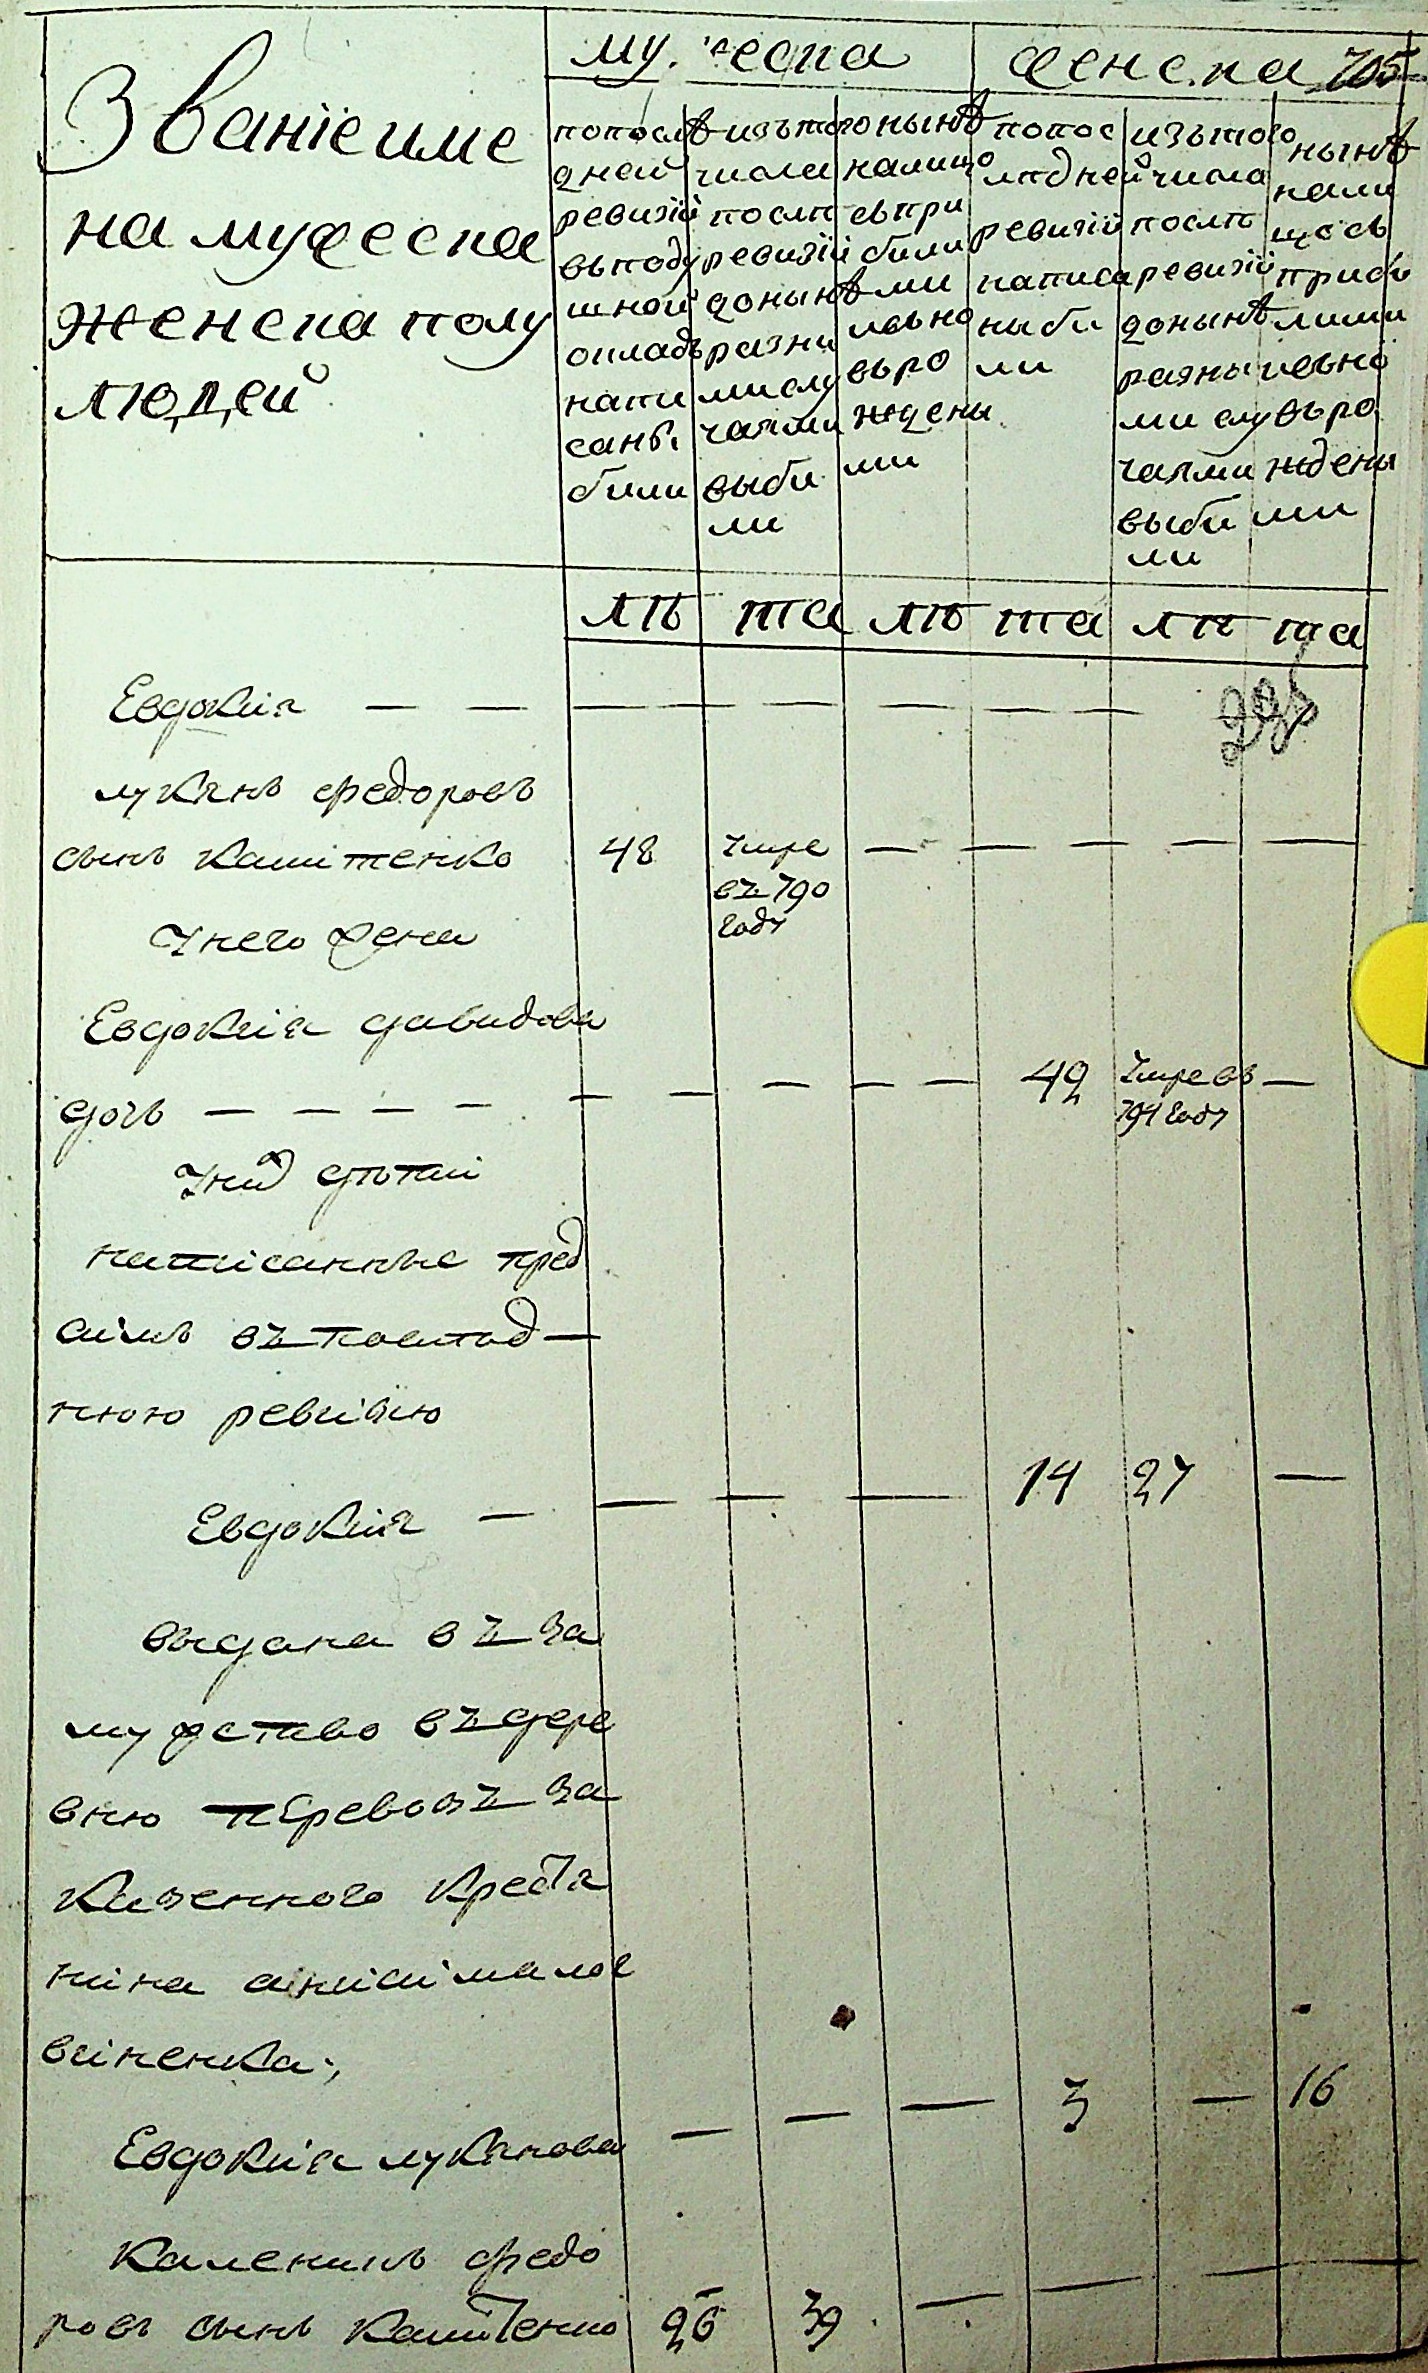 Званіе и име
на мужеска
женска полу
людей
му. еска
женска 705
попослѣ
дней
ревизій
въподу
шной
окладъ
напи
саны
били
изътого
числа
послѣ
ревизій
донынѣ
разни
мислу
чаями
выби
ли
нынѣ
налицо
съпри
били
ми
ивьно
вьро
ждены
ми
попос
лѣдней
ревизій
написа
ны би
ли
изътого
числа
послѣ
ревизій
донынѣ
разны
ми слу
чаями
выби
ли
нынѣ
нали
цо съ
приби
лими
ивьно
въро
ждены
ми
лѣ та лѣ та лѣ та
Евдокия — — — — — — — — —
лукянъ федоровъ
сынъ Кашїтенко 48 Умре — — — —
въ 790
году
Унего жена
Евдокия давидова
дочь — — — — — — — — — 42 Умре въ —
794 году
Унид дѣтїи
напїсанные пред
сїмъ въ послѣд—
нюю ревизию
Евдокия — — — — 14 27 —
выдана въ за
мужство въ дере
вню перевозъ за
Казенного Крестя
нїна анїсїма лог
вїненка;
— — — 3 — 16
Евдокия лукянова
Каленикъ федо
ровъ сынъ Кашїтенко 26 39 — — — —